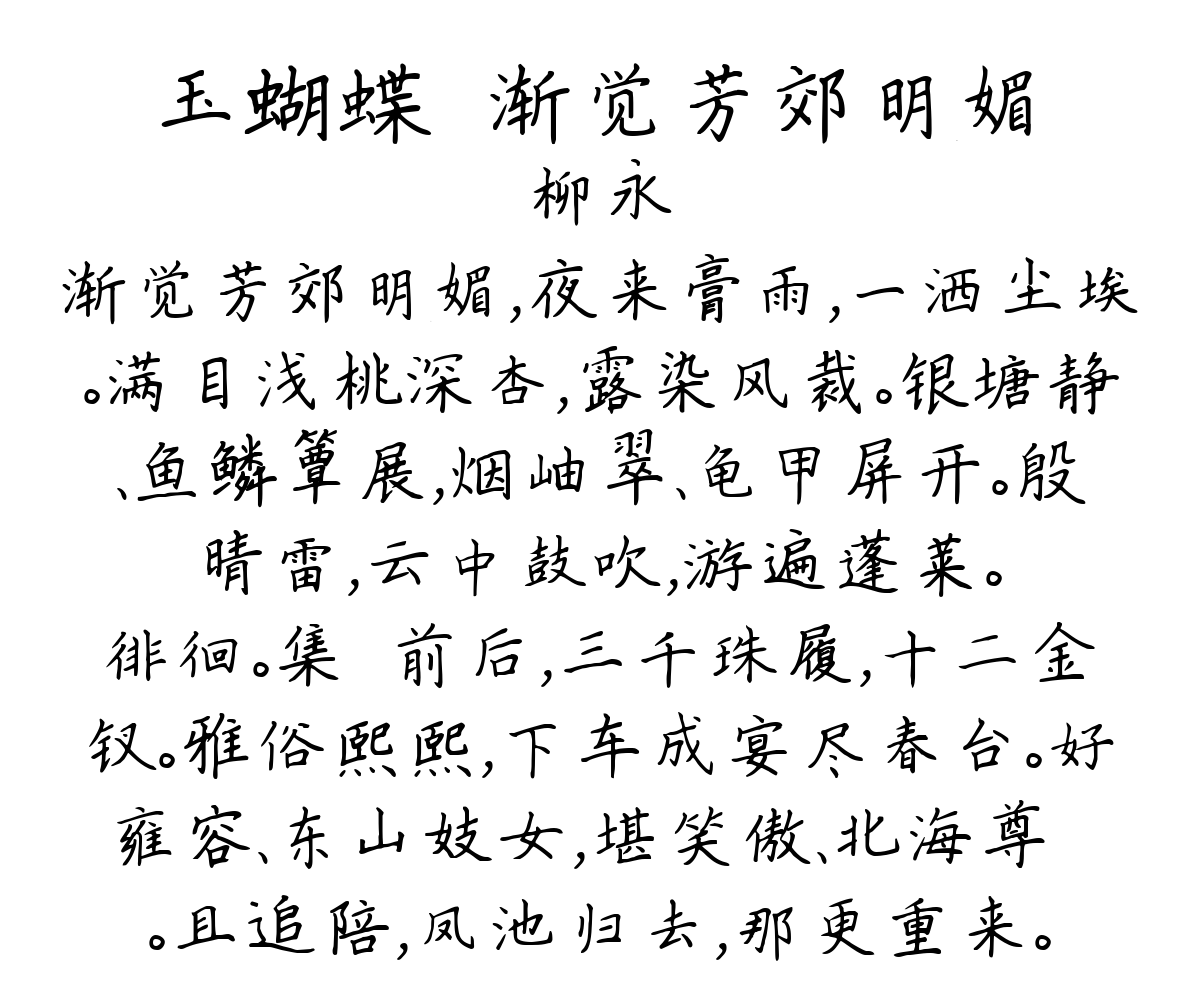 玉蝴蝶 渐觉芳郊明媚
柳永
渐觉芳郊明媚,夜来膏雨,一洒尘埃
。满目浅桃深杏,露染风裁。银塘静
、鱼鳞簟展,烟岫翠、龟甲屏开。殷
晴雷,云中鼓吹,游遍蓬莱。
徘徊。集 前后,三千珠履,十二金
钗。雅俗熙熙,下车成宴尽春台。好
雍容、东山妓女,堪笑傲、北海尊
。且追陪,凤池归去,那更重来。